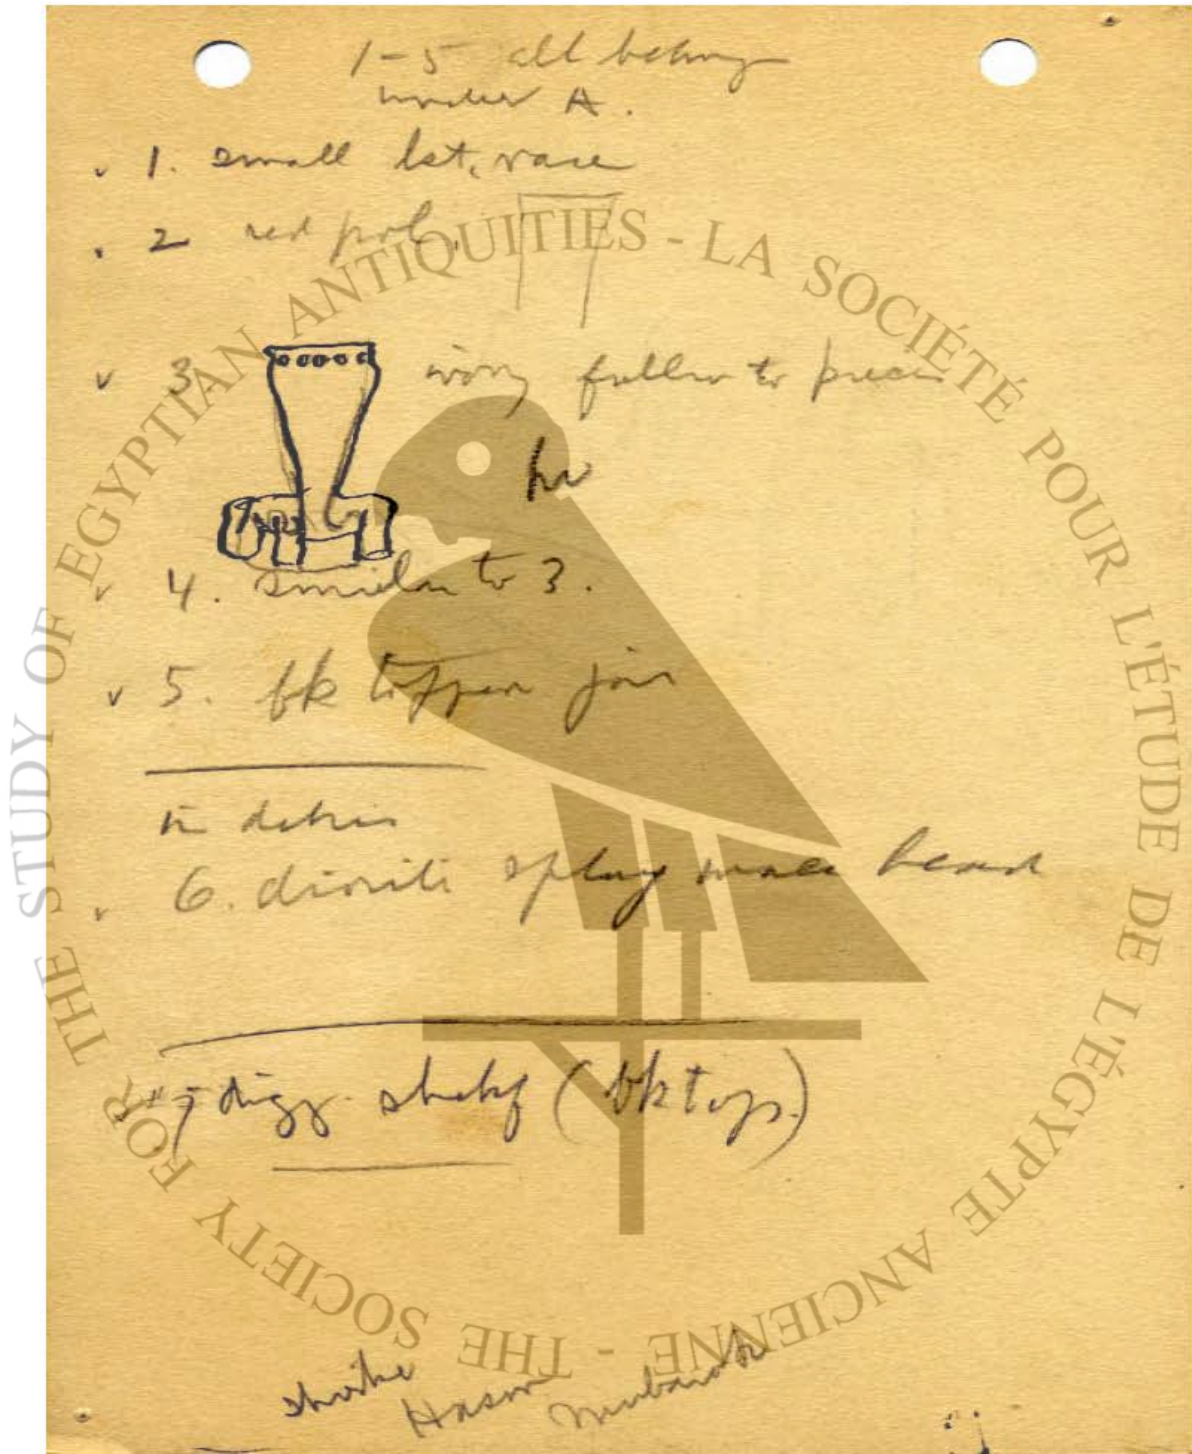 1-5 all belong
under A.
v 1. small lst. vase
. 2 red pol.
v 3 ivory fallen to pieces
v 4. similar to 3.
v 5. bk topped jar
in debris
v 6. diorite splay mace head
7 digg. (bk top.)
Hasan Mubarak
THE SOCIETY FOR THE STUDY OF EGYPTIAN ANTIQUITIES - LA SOCIÉTÉ POUR L'ÉTUDE DE L'ÉGYPTE ANCIENNE -